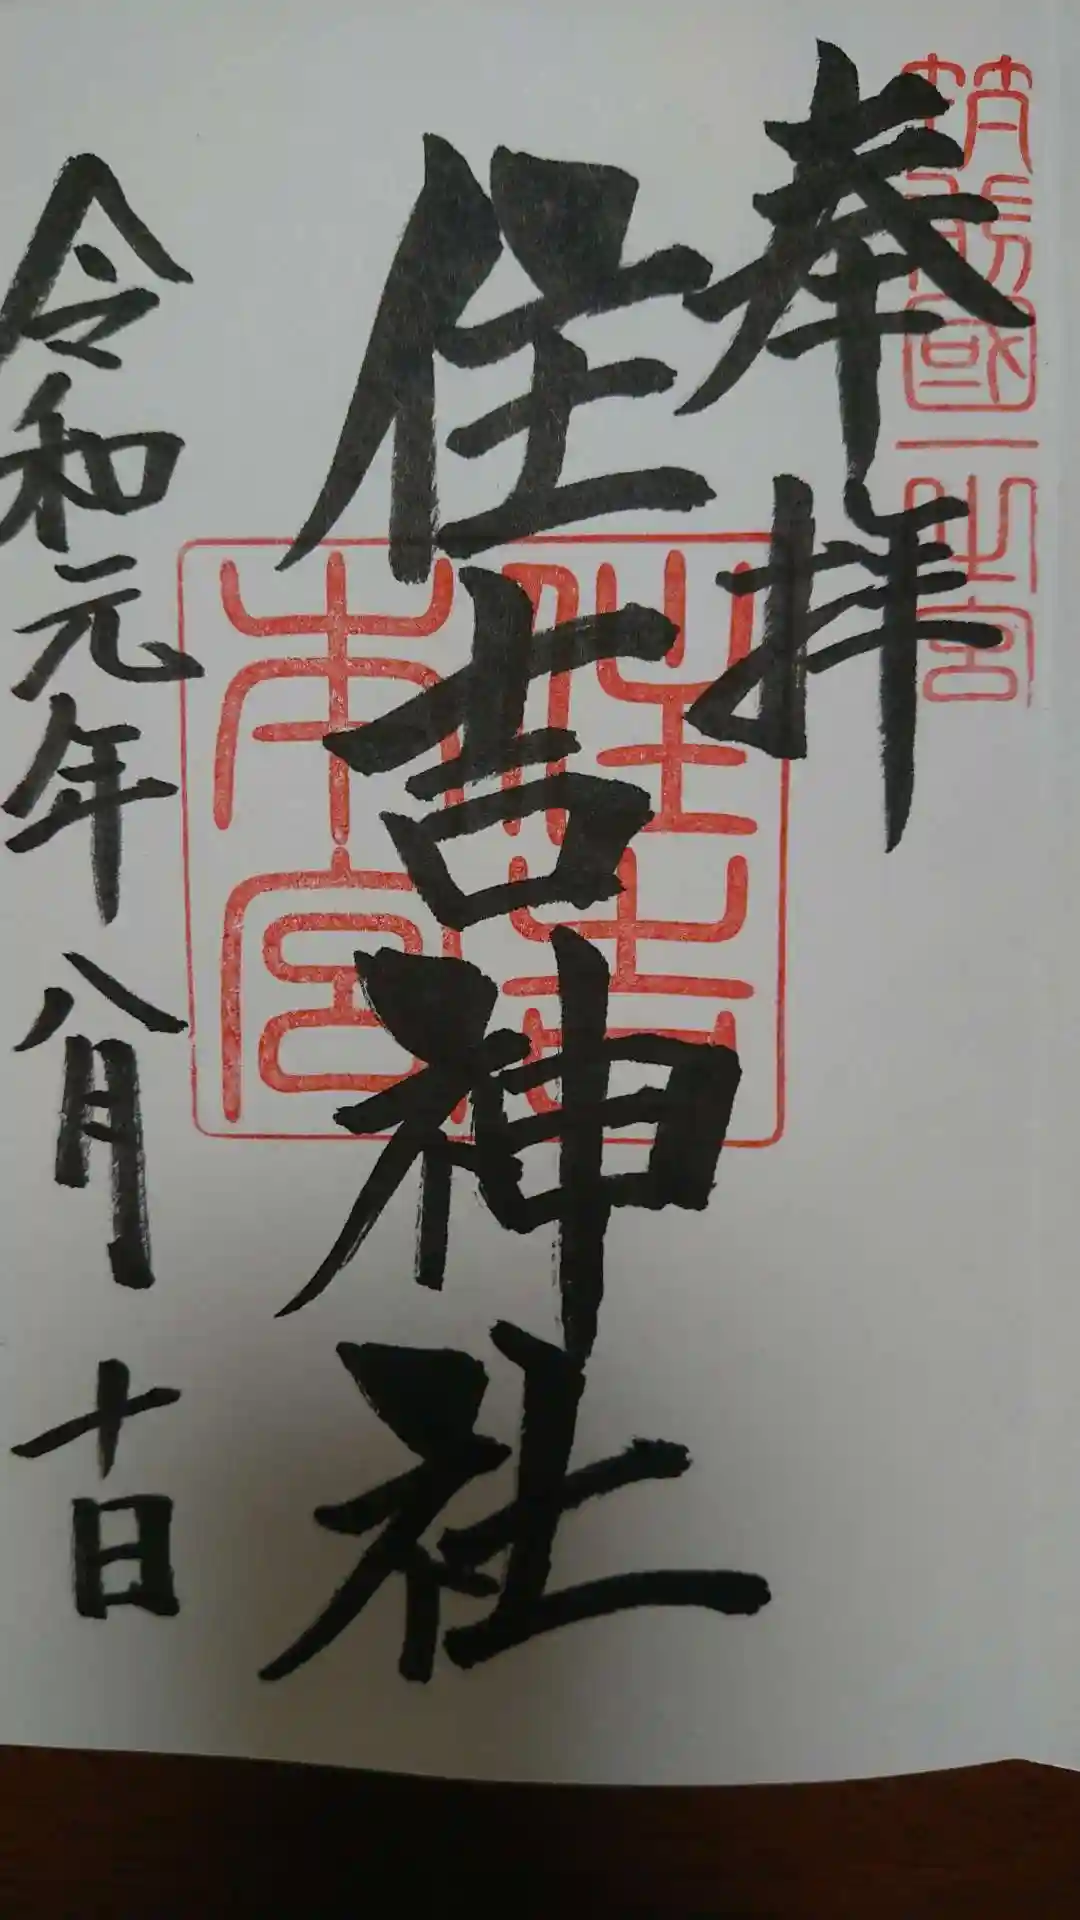 筑前國一之宮
奉拝
住吉神社
住吉神社本宮
令和元年八月十日